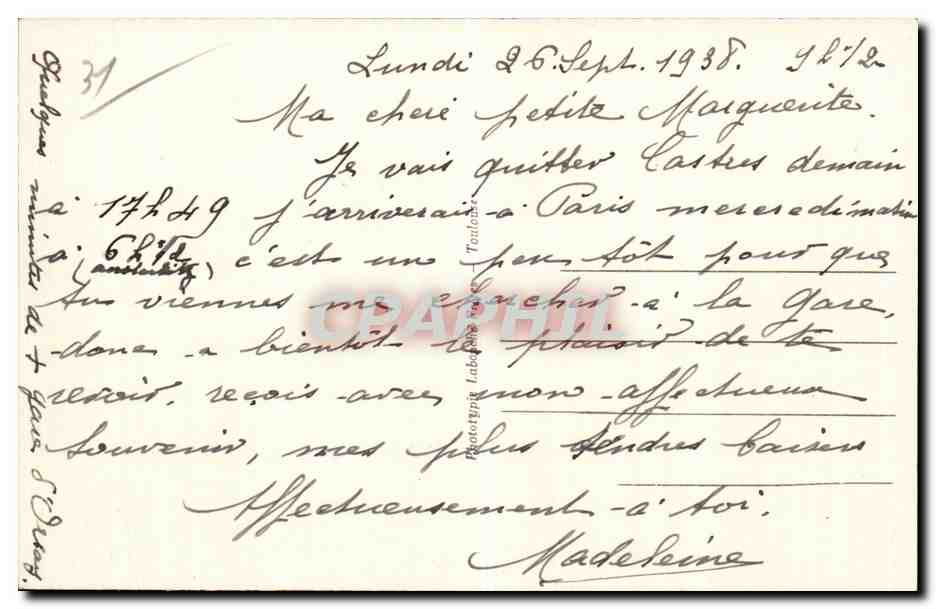 31
Lundi 26 Sept. 1938. 9h 1/2
Ma cheré petite Marguerite.
Je vais quitter Castres demain
à 17h49 j'arriverais à Paris mercredi matin
à 6h 1/2 (austerlitz) c'est un peu tôt pour que
tu viennes me chercher à la gare,
donc a bientôt le plaisir de te
revoir, reçois avec mon affectueux
souvenir, mes plus tendres baisers
Affectueusement à toi.
Madeleine
Quelques minutes de + gare d'Orsay.
Phototypie Labouche Frères - Toulouse
CPAPHIL